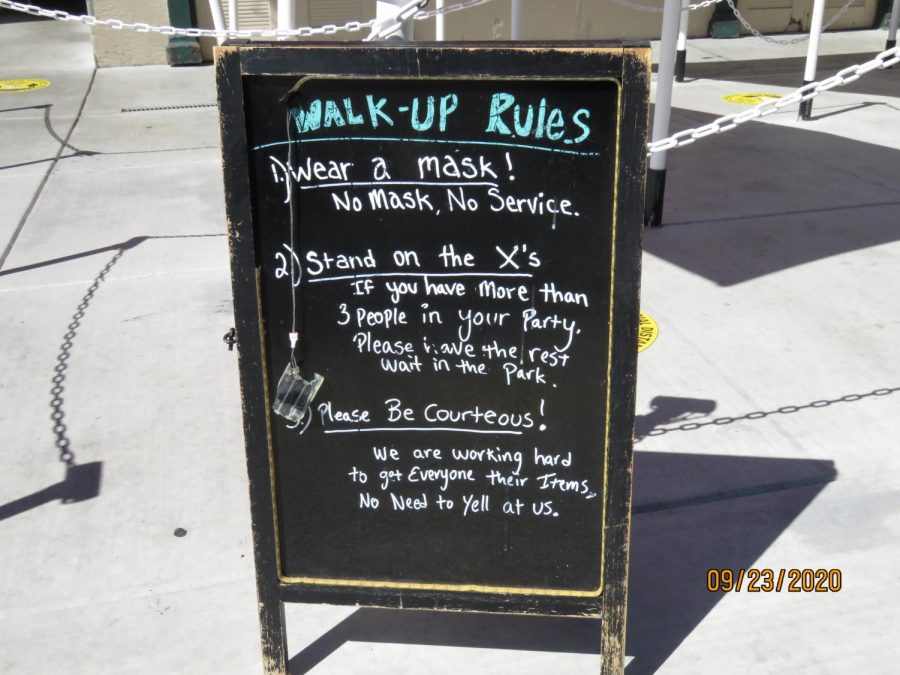 WALK-UP Rules
1.) Wear a mask!
No Mask, No Service.
2) Stand on the X's
If you have more than
3 People in your Party,
Please have the rest
wait in the Park.
3.) Please Be Courteous!
We are working hard
to get Everyone their Items.
No Need to Yell at us.
09/23/2020